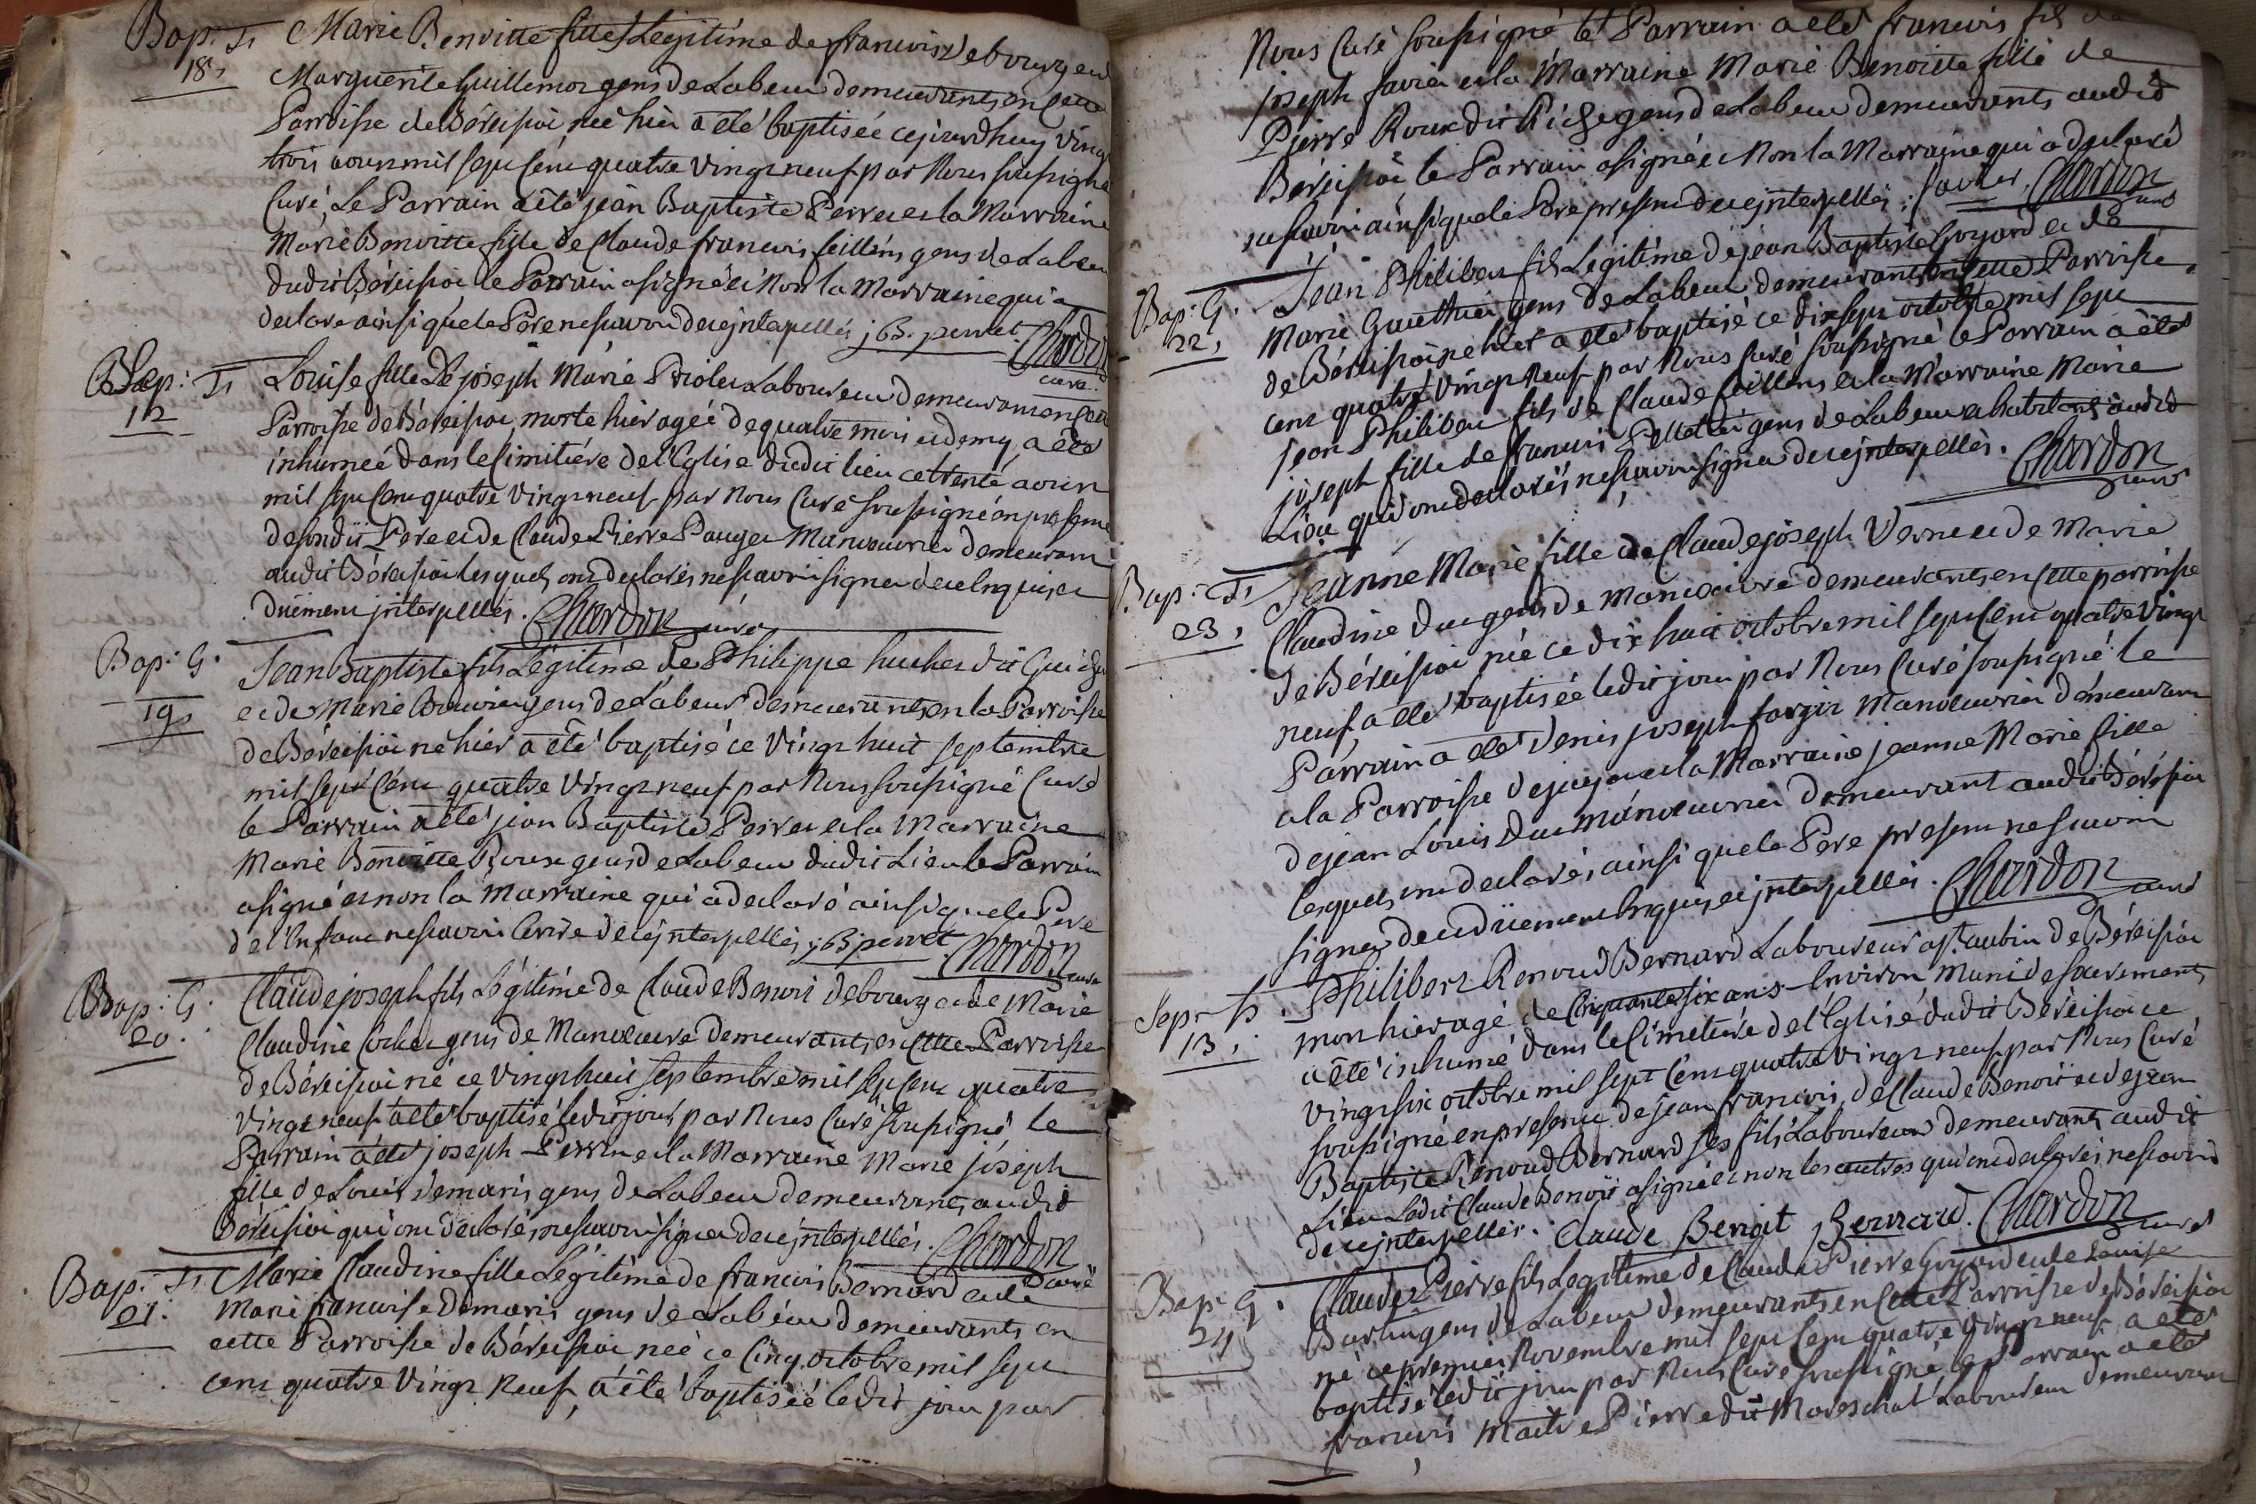 Bap: F.
18.
Marie Benoitte fille Légitime de francois debourg et de
Marguerite Guillemoz gens de Labeur demeurants en Cette
Parroisse de Béreisiat née hier a été baptisée cejourdhuy vingt
trois aoust mil sept Cent quatre vingt neuf par Nous soussigné
Curé, Le Parrain a été jean Baptiste Perret et la Marraine
Marie Benoitte fille de Claude francois feillens gens de Labeur
dudit Béreisiat le Parrain a signé et Non la Marraine qui a
declaré ainsi que le Père ne scavoir de ce jnterpellés j B. perret. Chardon
curé
Sep: F.
12
Louise fille de joseph Marie Laboureur demeurant en Cette
Parroisse de Béreisiat, morte hier agée de quatre mois et demy a été
inhumée dans le Cimitiére de l'Eglise dudit lieu ce trente aoust
mil sept Cent quatre vingt neuf par Nous Curé soussigné en presence
de sondit Père et de Claude Pierre Pauget Manoeuvrier demeurant
audit Béreisiat lesquels ont declarés ne scavoir signer de ce Enquis et
düement jnterpellés. Chardon curé
Bap: G.
19.
Jean Baptiste fils Légitime de Philippe hucher dit Guichon
et de Marie Bouvier gens de Labeur demeurants en la Parroisse
de Béreisiat né hier a été baptisé ce vingt huit septembre
mil sept Cent quatre vingt neuf par Nous soussigné Curé
le Parrain a été jean Baptiste Perret et la Marraine
Marie Benoitte Roux gens de Labeur dudit Lieu le Parrain
a signé et non la Marraine qui a declaré ainsi que le Père
de l'Enfant ne scavoir Ecrire de ce jnterpellés j B perret Chardon
curé
Bap: G.
20.
Claude joseph fils Légitime de Claude Benoit debourg et de Marie
Claudine Cochet gens de Manoeuvre demeurants en Cette Parroisse
de Béreisiat né ce vingt huit septembre mil sept cent quatre
vingt neuf a été baptisé ledit jour par Nous Curé soussigné le
Parrain a été joseph Perret et la Marraine Marie joseph
fille de Louis demaris gens de Labeur demeurants audit
Béreisiat qui ont declarés ne scavoir signer de ce jnterpellés. Chardon
curé
Bap: F.
21.
Marie Claudine fille Légitime de francois Bernard et de
Marie francoise demaris gens de Labeur demeurants en
cette Parroisse de Béreisiat née ce Cinq octobre mil sept
cent quatre vingt Neuf, a été baptisée ledit jour par
Nous Curé soussigné le Parrain a été francois fils de
joseph favier et la Marraine Marie Benoitte fille de
Pierre Roux dit Riche gens de Labeur demeurants audit
Béreisiat le Parrain a signé et Non la Marraine qui a declaré
ne scavoir ainsi que le Pere present de ce jnterpellés. favier. Chardon
curé
Bap: G.
22.
Jean Philibert fils Légitime de jean Baptiste Goyard et de
Marie Gauthier gens de Labeur demeurants en Cette Parroisse
de Béreisiat né hier a été baptisé ce dix sept octobre mil sept
cent quatre vingt Neuf par Nous Curé soussigné le Parrain a été
jean Philibert fils de Claude feillens et la Marraine Marie
joseph fille de francois Pelletier gens de Labeur habitants audit
Lieu qui ont declarés ne scavoir signer de ce jnterpellés. Chardon
curé
Bap: F.
23.
Jeanne Marie fille de Claude joseph Verne et de Marie
Claudine Duc gens de Manoeuvre demeurants en Cette parroisse
de Béreisiat née ce dix huit octobre mil sept Cent quatre vingt
neuf a été baptisée ledit jour par Nous Curé soussigné le
Parrain a été Denis joseph fargir Manoeuvrier demeurant
a la Parroisse de jayat et la Marraine jeanne Marie fille
de jean Louis Duc Manoeuvrier demeurant audit Béreisiat
lesquels ont declarés ainsi que le Pere present ne scavoir
signer de ce düement Enquis et jnterpellés. Chardon
curé
Sep: h.
13.
Philibert Renoud Bernard Laboureur a St. aubin de Béreisiat
mort hier agé de Cinquante six ans Environ, Muni de sacrements
a été inhumé dans le Cimetiére de l'Eglise dudit Béreisiat ce
vingt six octobre mil sept Cent quatre vingt neuf par Nous Curé
soussigné en presence de jean francois, de Claude Benoit et de jean
Baptiste Renoud Bernard ses fils Laboureurs demeurants audit
Lieu Ledit Claude Benoit a signé et non les autres qui ont declarés ne scavoir
de ce jnterpellés. Claude Benoit Bernard. Chardon
curé
Bap: G.
24
Claude Pierre fils Legitime de Claude Pierre Goyard et de Louise
gens de Labeur demeurants en Cette Parroisse de Béreisiat
né ce premier Novembre mil sept Cent quatre vingt neuf a été
baptisé ledit jour par Nous Curé soussigné le Parrain a été
francois Maitre Pierre dit Mareschal Laboureur demeurant